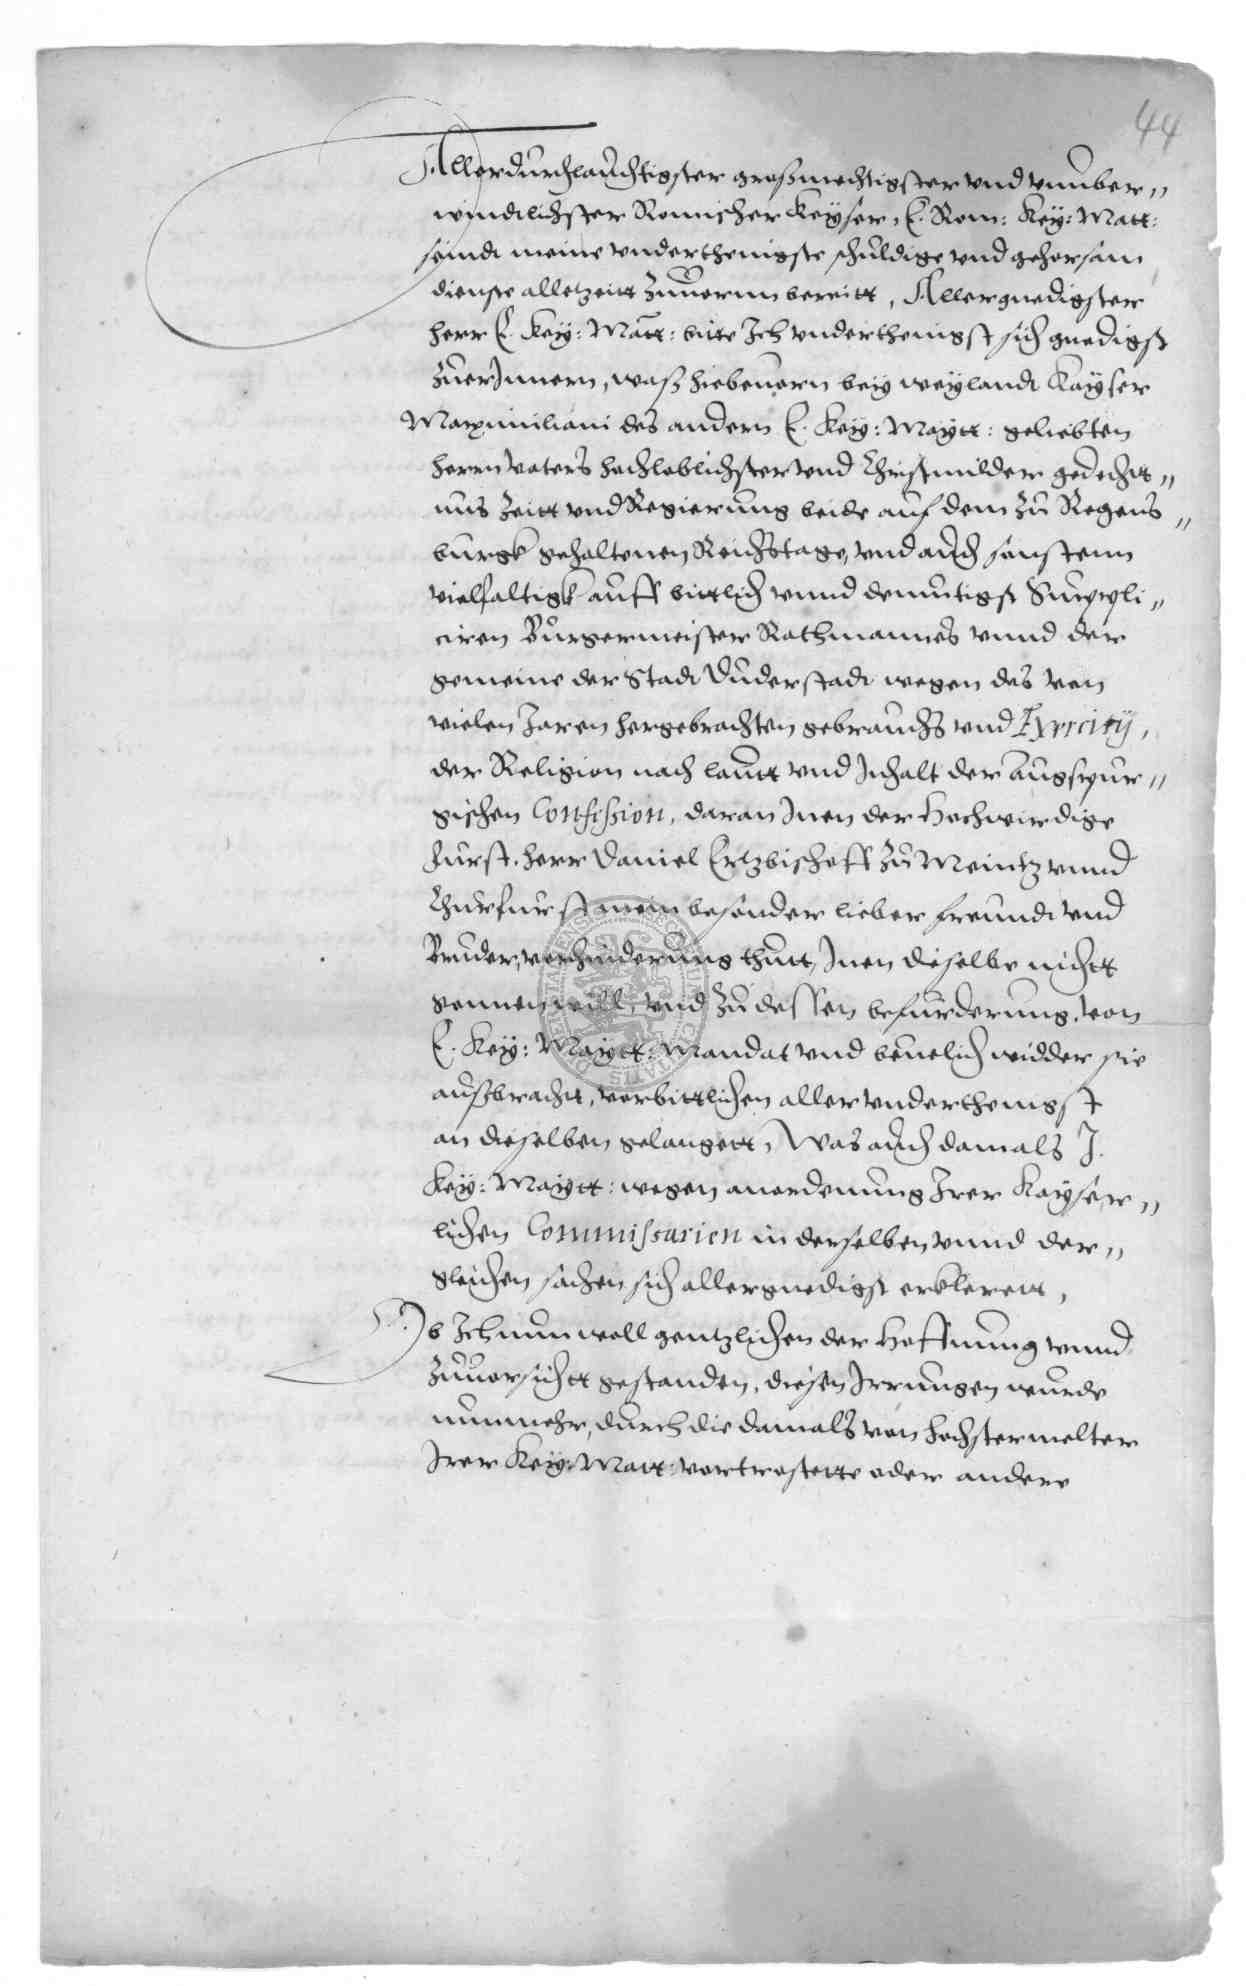 44
Allerdurchlauchtigster großmechtigster vnd vnuber„
windtlichster Romischer Keyser, E. Rom: Key: Matt:
seindt meine vnderthenigste schuldige vnd gehorsam
dienste alletzeitt zuuornn bereitt, Allergnedigster
herr E. Key: Matt: bitte Ich vnderthenigst sich gnedigst
zuerInnern, waß hiebeuorn bey weylandt Kayser
Maximiliani des andern E. Key: Maytt: geliebten
herrn vaters hochloblichster vnd Christmilder gedecht„
nus Zeitt vnd Regierung beide auf dem zu Regens„
burgk gehaltenen Reichstage, vnd auch sonstenn
vielfaltigk auff bittlich vnnd demutigst Suppli„
ciren Burgermeister Rathmannes vnnd der
gemeine der Stadt Duderstadt wegen des von
vielen Jaren hergebrachten gebrauchs vnd Exercitÿ,
der Religion nach lautt vnd Inhalt der Augspur„
gischen Confession, daran Inen der Hochwirdige
Furst, herr Daniel Ertzbischoff zu Meintz vnnd
Churfurst mein besonder lieber freundt vnd
Bruder, verhinderung thutt, Inen dieselbe nichtt
gonnen will, vnd zu dessen befurderung, von
E. Key: Maytt: Mandat vnd beuelich widder sie
außbracht, vorbittlichen aller vnderthenigst
an dieselben gelangett, Was auch damals J.
Key: Maytt: wegen anordenung Irer Kayser„
lichen Commissarien in derselben vnnd der„
gleichen sachen sich allergnedigst erklerett,
Ob Ich nun woll gentzlichen der Hoffnung vnnd
zuuorsichtt gestanden, diesen Irrungen wurde
nunmehr, durch die damals von hochstermelter
Irer Key: Matt: vortrostette oder andere